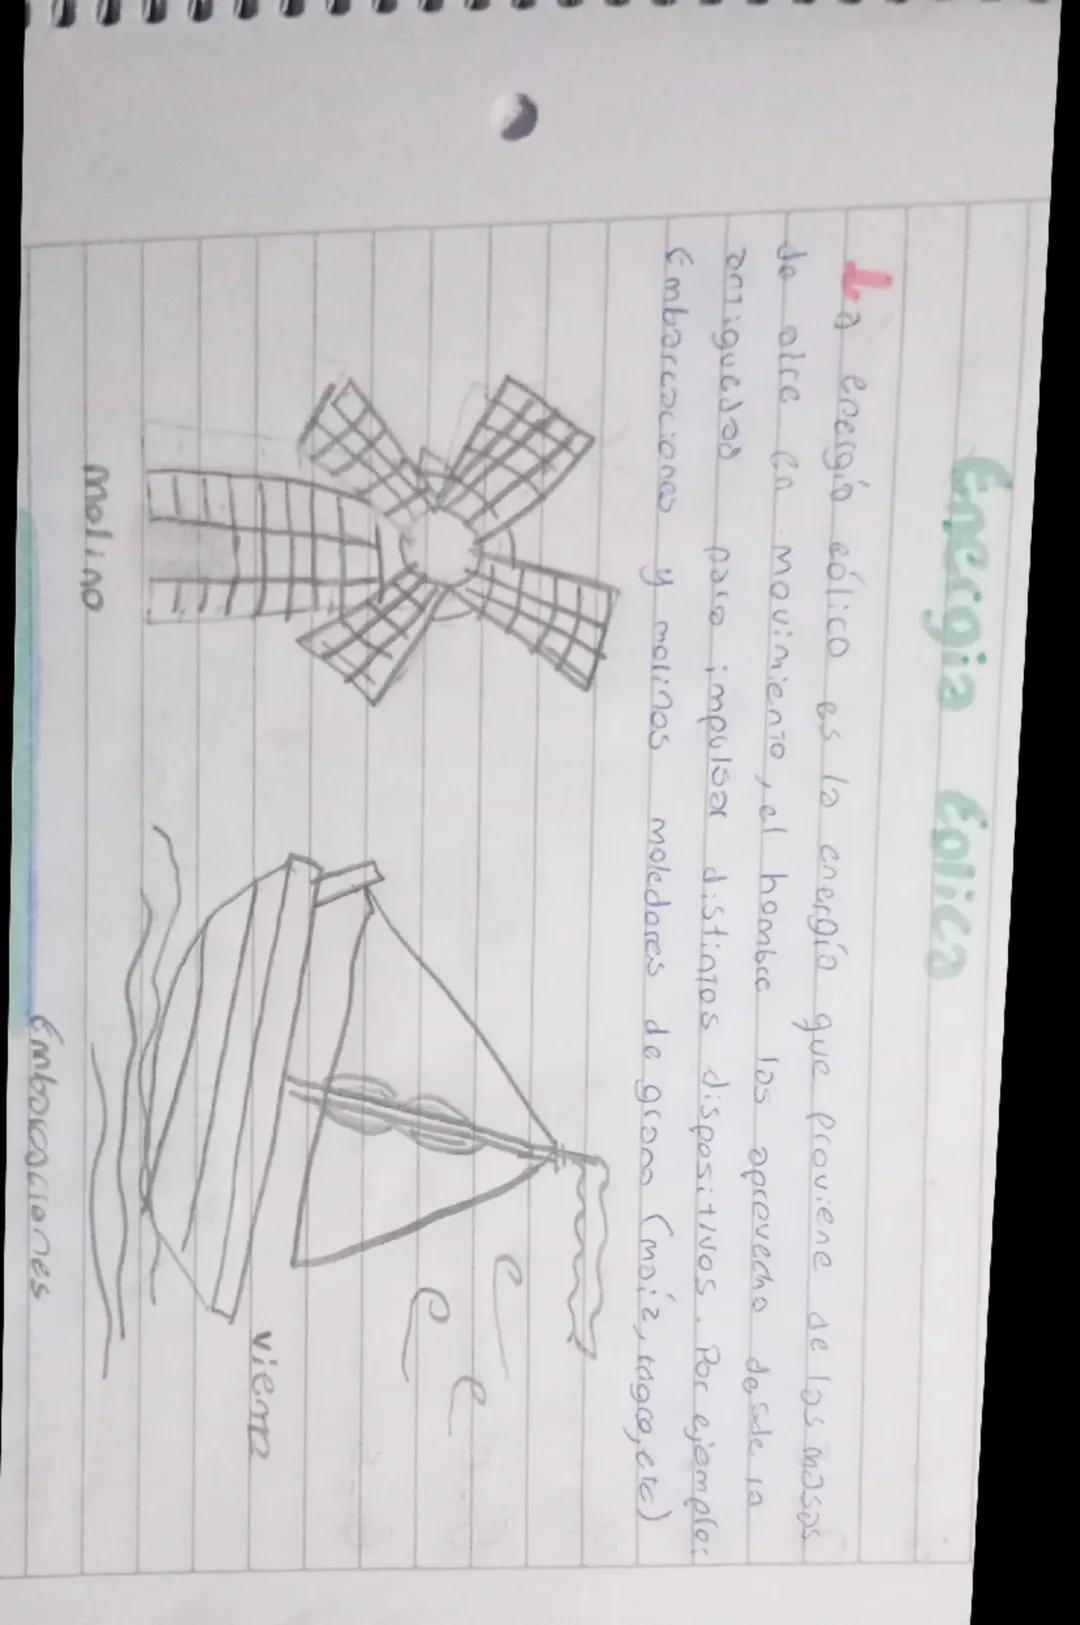 Energia Eolica
La energía eólica es la energía que proviene de las masas
de aire en movimiento, el hombre las aprovecha desde la
antiguedad para impulsar distintos dispositivos. Por ejemplo:
Embarcaciones y molinos moledores de grano (maíz, trigo, etc)
viento
molino
Embarcaciones